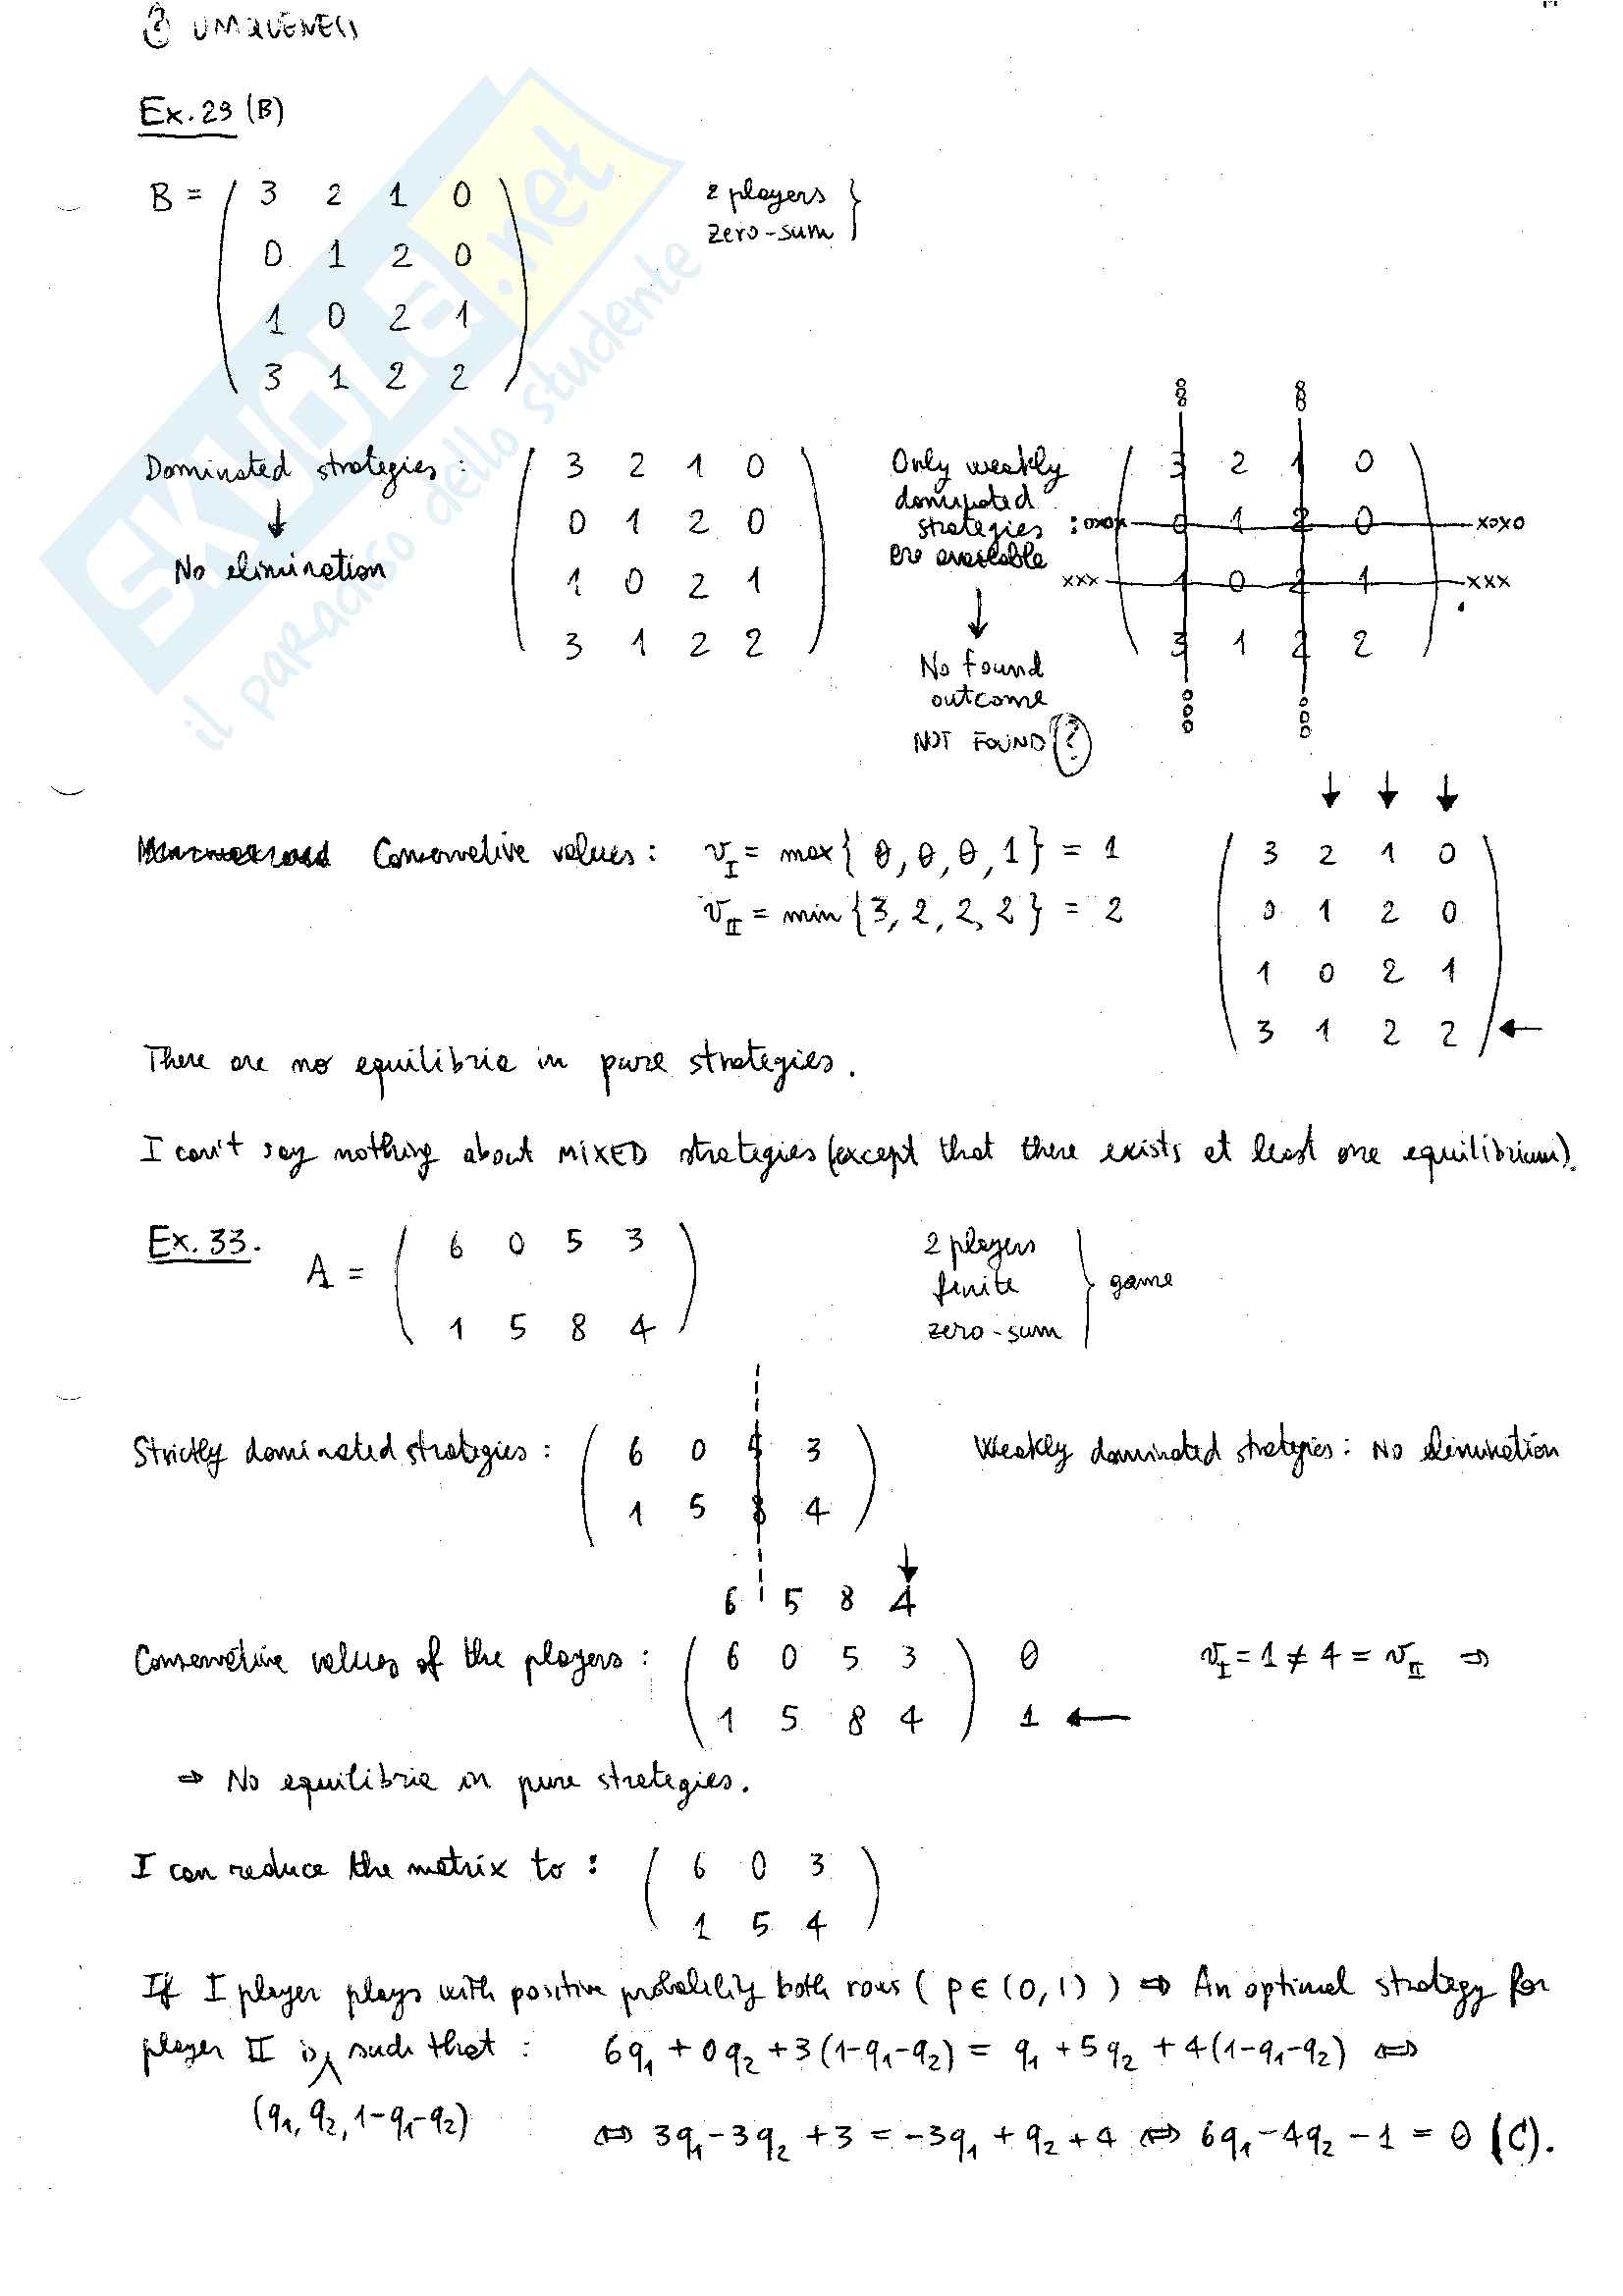 ? UNIQUENESS
Ex. 29 (B)
B = ( 3 2 1 0
0 1 2 0
1 0 2 1
3 1 2 2 )
2 players
zero-sum }
Dominated strategies :
↓
No elimination
( 3 2 1 0
0 1 2 0
1 0 2 1
3 1 2 2 )
Only weakly
dominated
strategies :
are available
↓
No found
outcome
NOT FOUND ?
( 3 2 1 0
oxox 0 1 2 0 xoxo
xxx 1 0 2 1 xxx
3 1 2 2 )
Conservative values : v_I = max{ 0, 0, 0, 1 } = 1
v_II = min { 3, 2, 2, 2 } = 2
↓ ↓ ↓
( 3 2 1 0
0 1 2 0
1 0 2 1
3 1 2 2 ) ←
There are no equilibria in pure strategies.
I can't say nothing about MIXED strategies (except that there exists at least one equilibrium).
Ex. 33.
A = ( 6 0 5 3
1 5 8 4 )
2 players
finite
zero-sum } game
Strictly dominated strategies : ( 6 0 5 3
1 5 8 4 )
Weakly dominated strategies : No elimination
↓
6 5 8 4
Conservative values of the players : ( 6 0 5 3 ) 0
( 1 5 8 4 ) 1 ←
v_I = 1 ≠ 4 = v_II ⇒
⇒ No equilibria in pure strategies.
I can reduce the matrix to : ( 6 0 3
1 5 4 )
If I player plays with positive probability both rows ( p ∈ (0,1) ) ⇒ An optimal strategy for
player II is (q₁, q₂, 1-q₁-q₂) such that : 6q₁ + 0q₂ + 3(1-q₁-q₂) = q₁ + 5q₂ + 4(1-q₁-q₂) ⇔
⇔ 3q₁ - 3q₂ + 3 = -3q₁ + q₂ + 4 ⇔ 6q₁ - 4q₂ - 1 = 0 (C).
SKUOLA.net
il paradiso dello studente